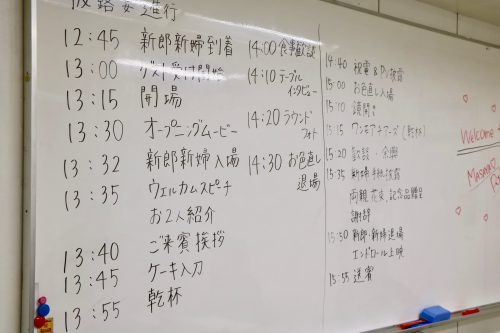 披露宴進行
12:45 新郎新婦到着
13:00 ゲスト受付開始
13:15 開場
13:30 オープニングムービー
13:32 新郎新婦入場
13:35 ウェルカムスピーチ
お2人紹介
13:40 ご来賓挨拶
13:45 ケーキ入刀
13:55 乾杯
14:00 食事歓談
14:10 テーブル
インタビュー
14:20 ラウンド
フォト
14:30 お色直し
退場
14:40 祝電 & PV披露
15:00 お色直し入場
15:10 鏡開き
15:15 ワンモアチアーズ(乾杯)
15:20 歓談・余興
15:35 新婦手紙披露
両親花束、記念品贈呈
謝辞
15:50 新郎・新婦退場
エンドロール上映
15:55 送賓
Welcome